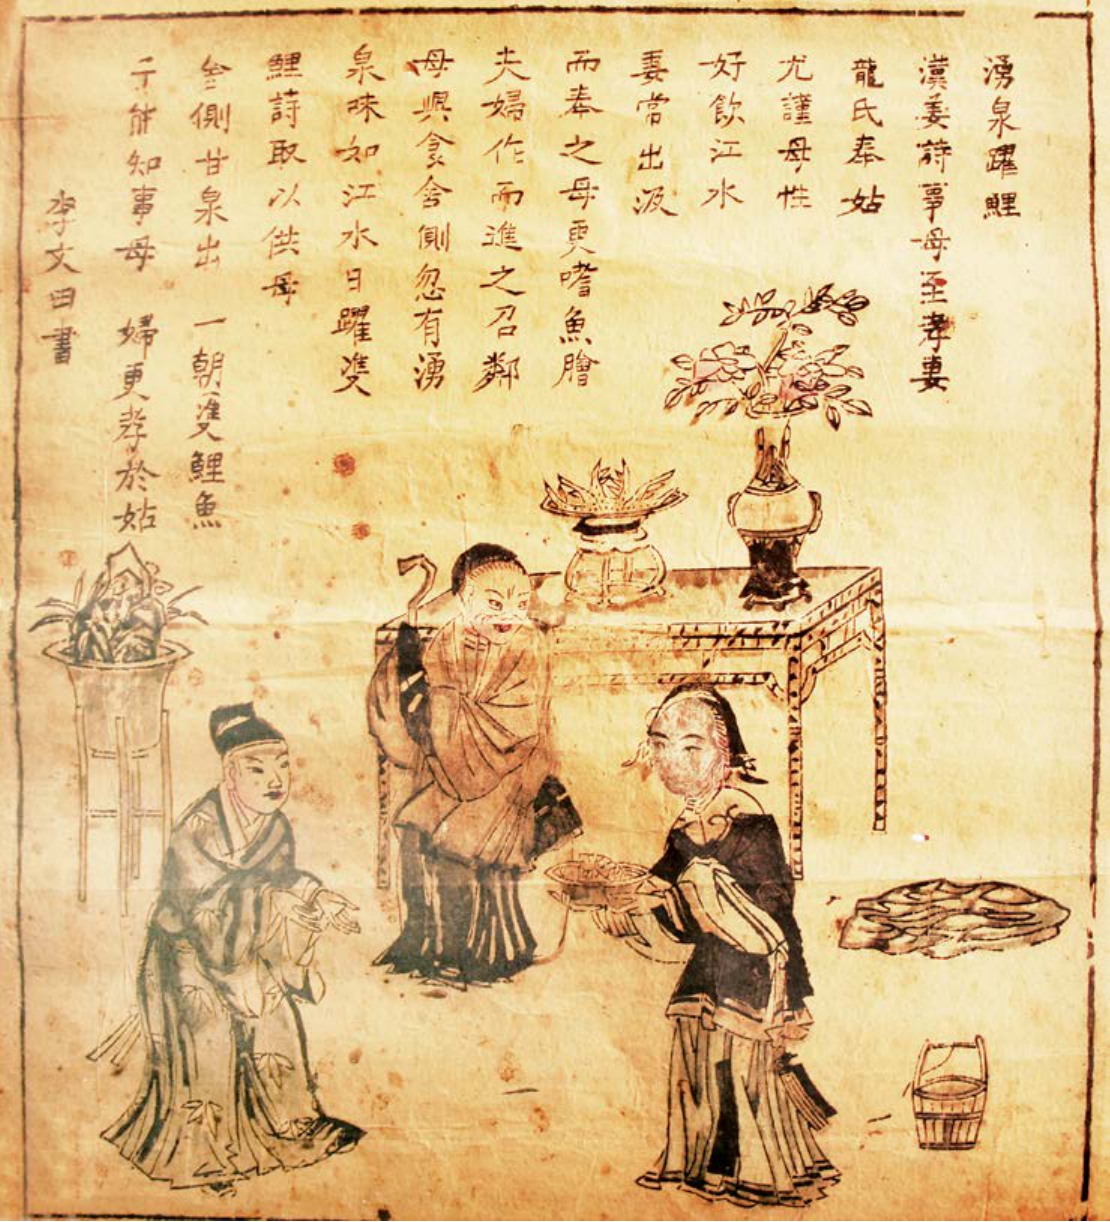 湧泉躍鯉
漢姜詩事母至孝妻
龍氏奉姑
尤謹母性
好飲江水
妻常出汲
而奉之母更嗜魚膾
夫婦作而進之召鄰
母與食舍側忽有湧
泉味如江水日躍雙
鯉詩取以供母
舍側甘泉出 一朝雙鯉魚
子能知事母 婦更孝於姑
李文田書